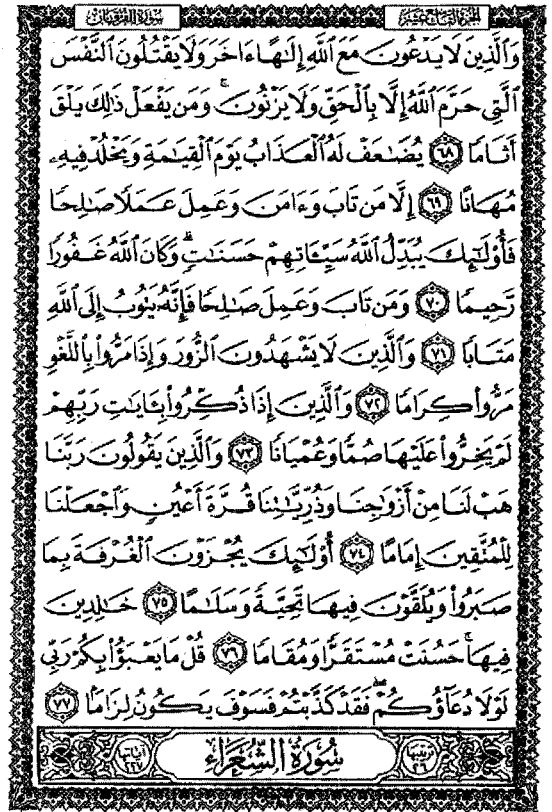 سورة الفرقان الجزء التاسع عشر
وَالَّذِينَ لَا يَدْعُونَ مَعَ اللَّهِ إِلَٰهًا ءَاخَرَ وَلَا يَقْتُلُونَ النَّفْسَ
الَّتِي حَرَّمَ اللَّهُ إِلَّا بِالْحَقِّ وَلَا يَزْنُونَ ۚ وَمَن يَفْعَلْ ذَٰلِكَ يَلْقَ
أَثَامًا ٦٨ يُضَٰعَفْ لَهُ الْعَذَابُ يَوْمَ الْقِيَٰمَةِ وَيَخْلُدْ فِيهِۦ
مُهَانًا ٦٩ إِلَّا مَن تَابَ وَءَامَنَ وَعَمِلَ عَمَلًا صَٰلِحًا
فَأُو۟لَٰٓئِكَ يُبَدِّلُ اللَّهُ سَيِّـَٔاتِهِمْ حَسَنَٰتٍ ۗ وَكَانَ اللَّهُ غَفُورًا
رَّحِيمًا ٧٠ وَمَن تَابَ وَعَمِلَ صَٰلِحًا فَإِنَّهُۥ يَتُوبُ إِلَى اللَّهِ
مَتَابًا ٧١ وَالَّذِينَ لَا يَشْهَدُونَ الزُّورَ وَإِذَا مَرُّوا۟ بِاللَّغْوِ
مَرُّوا۟ كِرَامًا ٧٢ وَالَّذِينَ إِذَا ذُكِّرُوا۟ بِـَٔايَٰتِ رَبِّهِمْ
لَمْ يَخِرُّوا۟ عَلَيْهَا صُمًّا وَعُمْيَانًا ٧٣ وَالَّذِينَ يَقُولُونَ رَبَّنَا
هَبْ لَنَا مِنْ أَزْوَٰجِنَا وَذُرِّيَّٰتِنَا قُرَّةَ أَعْيُنٍ وَاجْعَلْنَا
لِلْمُتَّقِينَ إِمَامًا ٧٤ أُو۟لَٰٓئِكَ يُجْزَوْنَ الْغُرْفَةَ بِمَا
صَبَرُوا۟ وَيُلَقَّوْنَ فِيهَا تَحِيَّةً وَسَلَٰمًا ٧٥ خَٰلِدِينَ
فِيهَا ۚ حَسُنَتْ مُسْتَقَرًّا وَمُقَامًا ٧٦ قُلْ مَا يَعْبَؤُا۟ بِكُمْ رَبِّي
لَوْلَا دُعَآؤُكُمْ ۖ فَقَدْ كَذَّبْتُمْ فَسَوْفَ يَكُونُ لِزَامًا ٧٧
ترتيبها ٢٦ سُورَةُ الشُّعَرَاءِ آياتها ٢٢٧